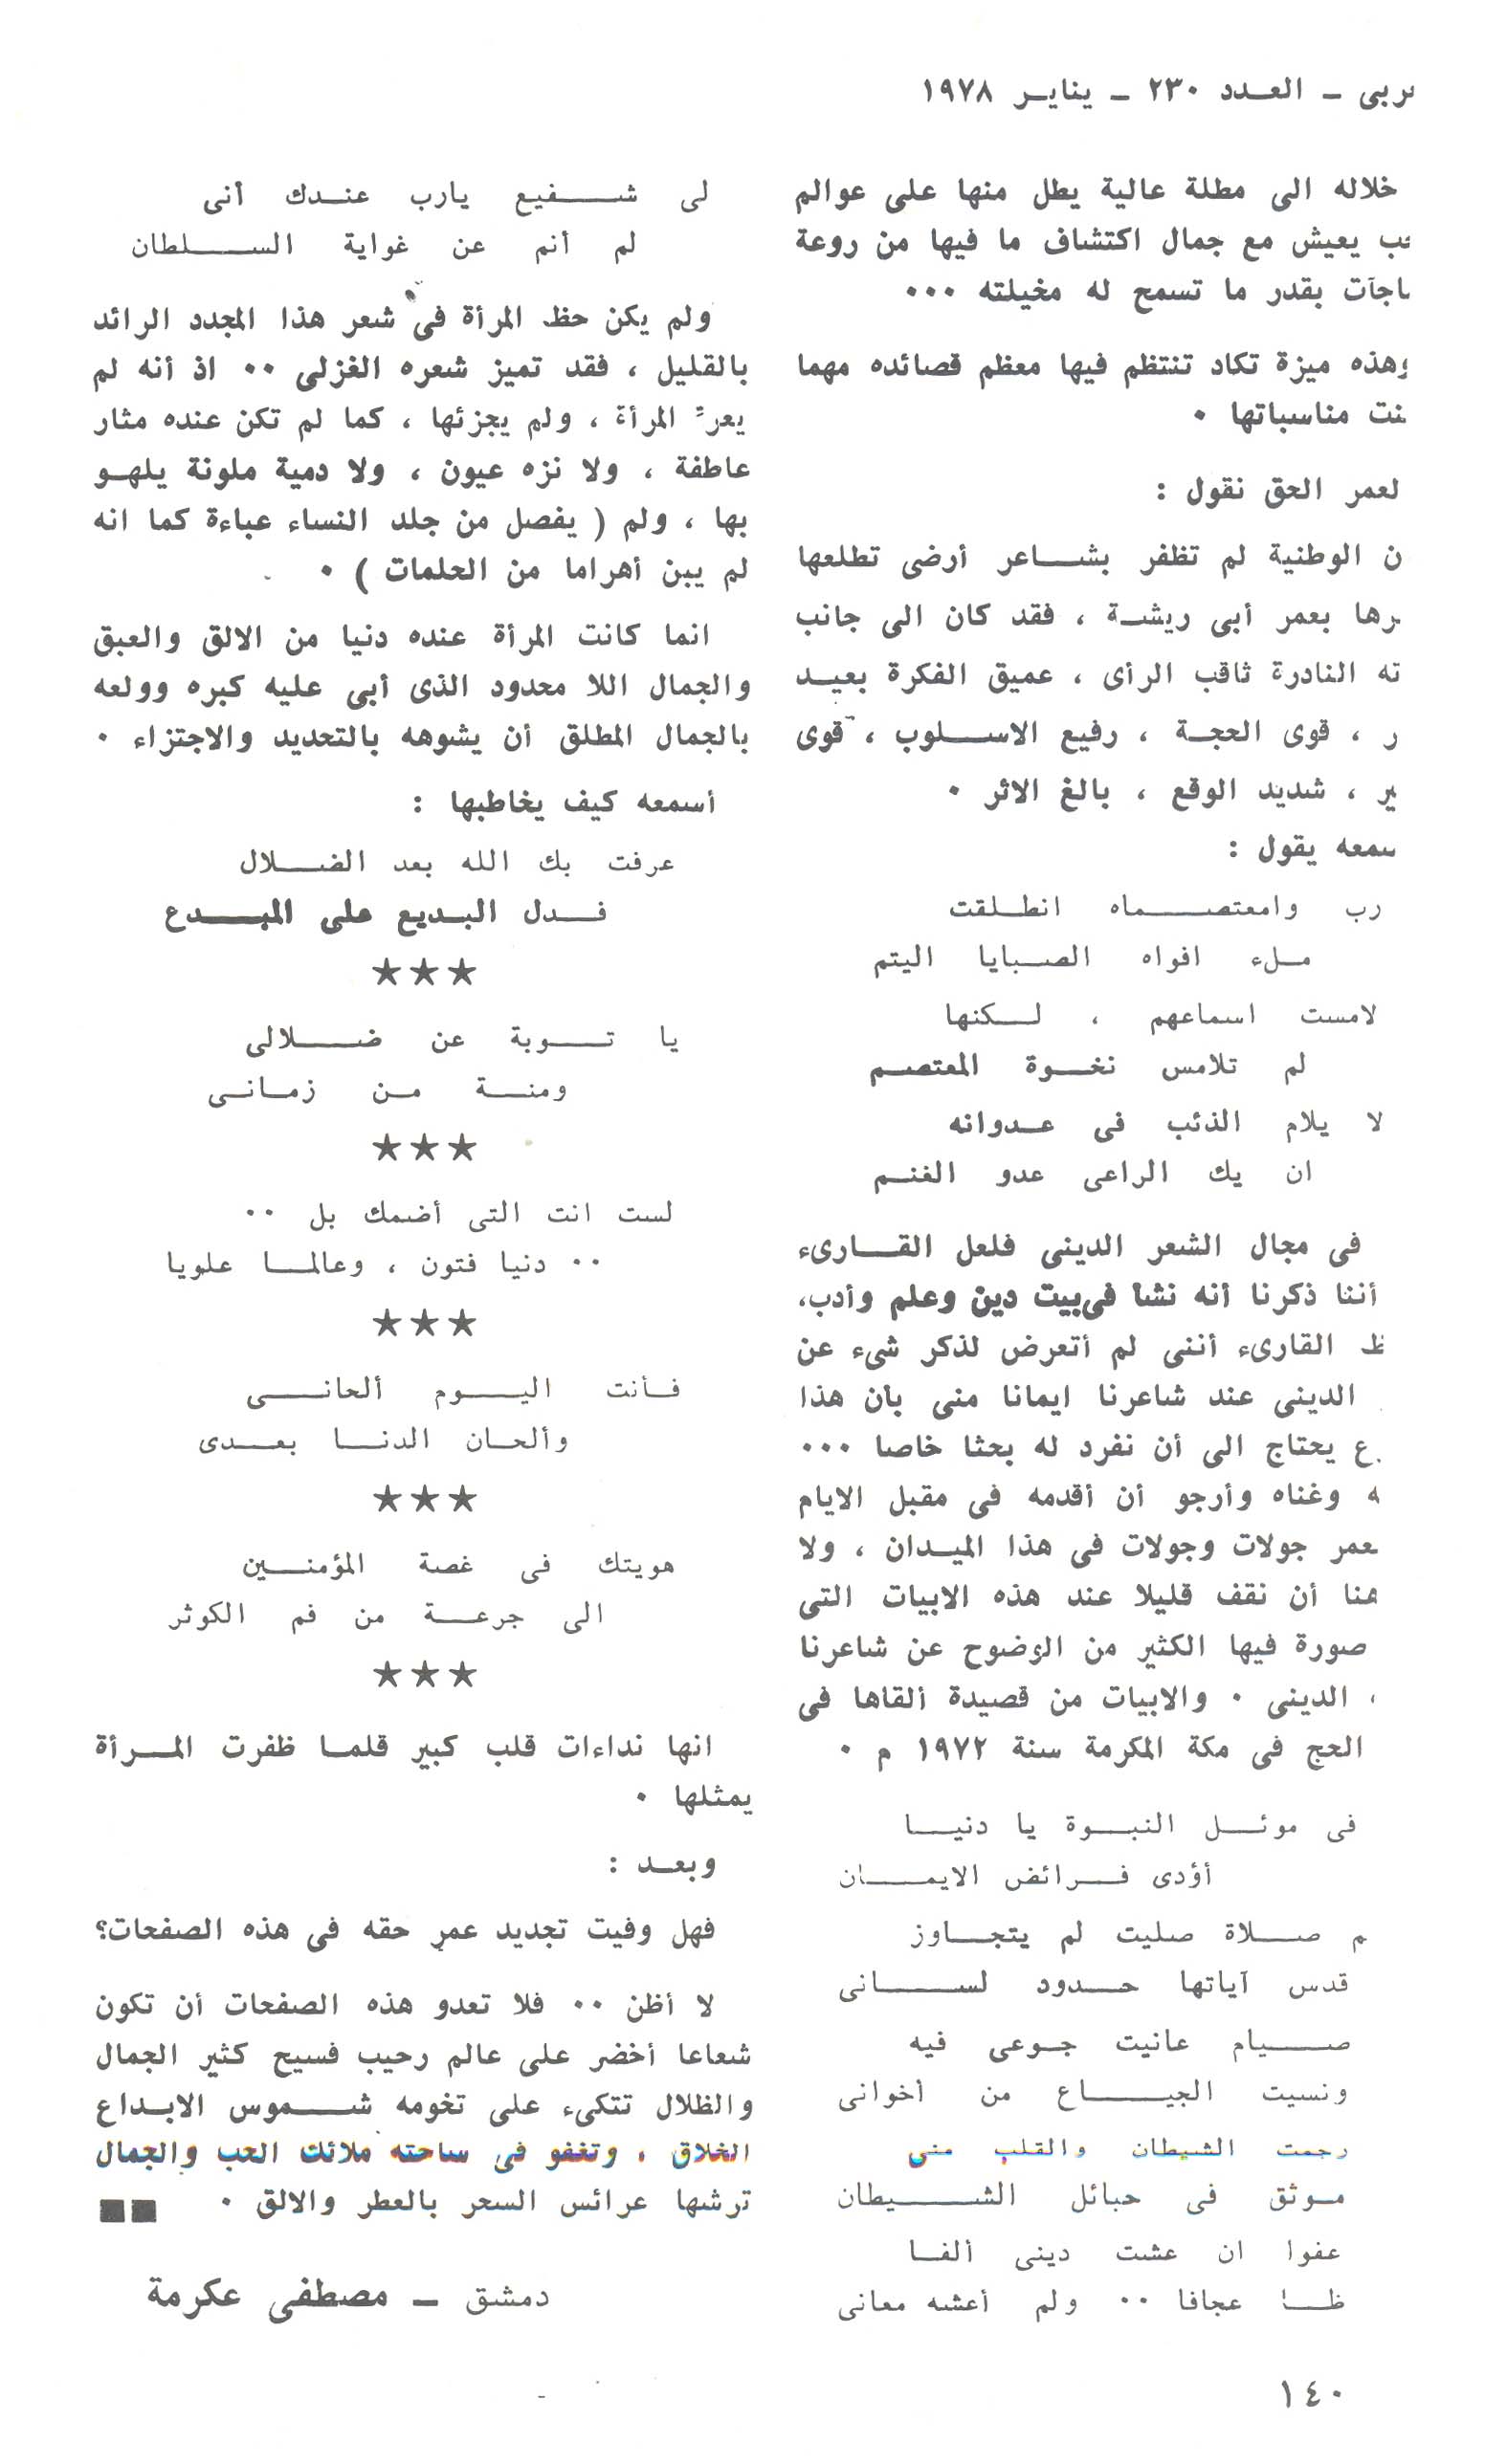 ربى ـ العـدد ٢٣٠ ـ ينايـر ١٩٧٨
خلاله الى مطلة عالية يطل منها على عوالم
حب يعيش مع جمال اكتشاف ما فيها من روعة
ـاجآت بقدر ما تسمح له مخيلته ٠٠٠
وهذه ميزة تكاد تنتظم فيها معظم قصائده مهما
ـنت مناسباتها ٠
لعمر الحق نقول :
ن الوطنية لم تظفر بشـاعر أرضى تطلعها
ـرها بعمر أبى ريشـة ، فقد كان الى جانب
ته النادرة ثاقب الرأى ، عميق الفكرة بعيـد
ر ، قوى الحجـة ، رفيع الاسـلوب ، قوى
ـير ، شديد الوقع ، بالغ الاثر ٠
سمعه يقول :
رب وامعتصـماه انطـلقت
مـلء افواه الصـبايا اليتم
لامست اسماعهم ، لـكنها
لم تلامس نخـوة المعتصـم
لا يلام الذئب فى عـدوانه
ان يك الراعى عدو الغنـم
فى مجال الشعر الدينى فلعل القـارىء
أننا ذكرنا أنه نشأ فى بيت دين وعلم وأدب،
ـظ القارىء أننى لم أتعرض لذكر شىء عن
الدينى عند شاعرنا ايمانا منى بأن هذا
ـع يحتاج الى أن نفرد له بحثا خاصا ٠٠٠
ـه وغناه وأرجو أن أقدمه فى مقبل الايام
ـعمر جولات وجولات فى هذا الميـدان ، ولا
هنا أن نقف قليلا عند هذه الابيات التى
صورة فيها الكثير من الوضوح عن شاعرنا
، الدينى ٠ والابيات من قصيدة ألقاها فى
الحج فى مكة المكرمة سنة ١٩٧٢ م ٠
فى موئـل النبـوة يا دنيـا
أؤدى فـرائض الايمـان
م صـلاة صليت لم يتجـاوز
قدس آياتها حـدود لسـانى
صـيام عانيت جـوعى فيه
ونسيت الجيـاع من أخوانى
رجمت الشيطان والقلب منى
مـوثق فى حبائل الشـيطان
عفوا ان عشت دينى ألفـا
ظـا عجافا ٠٠ ولم أعشه معانى
لى شـفيع يارب عنـدك أنى
لم أنم عن غواية السـلطان
ولم يكن حظ المرأة فى شعر هذا المجدد الرائد
بالقليل ، فقد تميز شعره الغزلى ٠٠ اذ أنه لم
يعرّ المرأة ، ولم يجزئها ، كما لم تكن عنده مثار
عاطفة ، ولا نزه عيون ، ولا دمية ملونة يلهـو
بها ، ولم ( يفصل من جلد النساء عباءة كما انه
لم يبن أهراما من الحلمات ) ٠
انما كانت المرأة عنده دنيا من الالق والعبق
والجمال اللا محدود الذى أبى عليه كبره وولعه
بالجمال المطلق أن يشوهه بالتحديد والاجتزاء ٠
أسمعه كيف يخاطبها :
عرفت بك الله بعد الضـلال
فـدل البـديع على المبـدع
★★★
يا تـوبة عن ضـلالى
ومنـة مـن زمـانـى
★★★
لست انت التى أضمك بل ٠٠
٠٠ دنيا فتون ، وعالمـا علويا
★★★
فـأنت اليـوم ألحانـى
وألحـان الدنـا بعـدى
★★★
هويتك فى غصة المؤمنـين
الى جرعـة من فم الكوثر
★★★
انها نداءات قلب كبير قلمـا ظفرت المـرأة
يمثلها ٠
وبعـد :
فهل وفيت تجديد عمر حقه فى هذه الصفحات؟
لا أظن ٠٠ فلا تعدو هذه الصفحات أن تكون
شعاعا أخضر على عالم رحيب فسيح كثير الجمال
والظلال تتكىء على تخومه شـموس الابـداع
الخلاق ، وتغفو فى ساحته ملائك الحب والجمال
ترشها عرائس السحر بالعطر والالق ٠
دمشق ـ مصطفى عكرمة
١٤٠